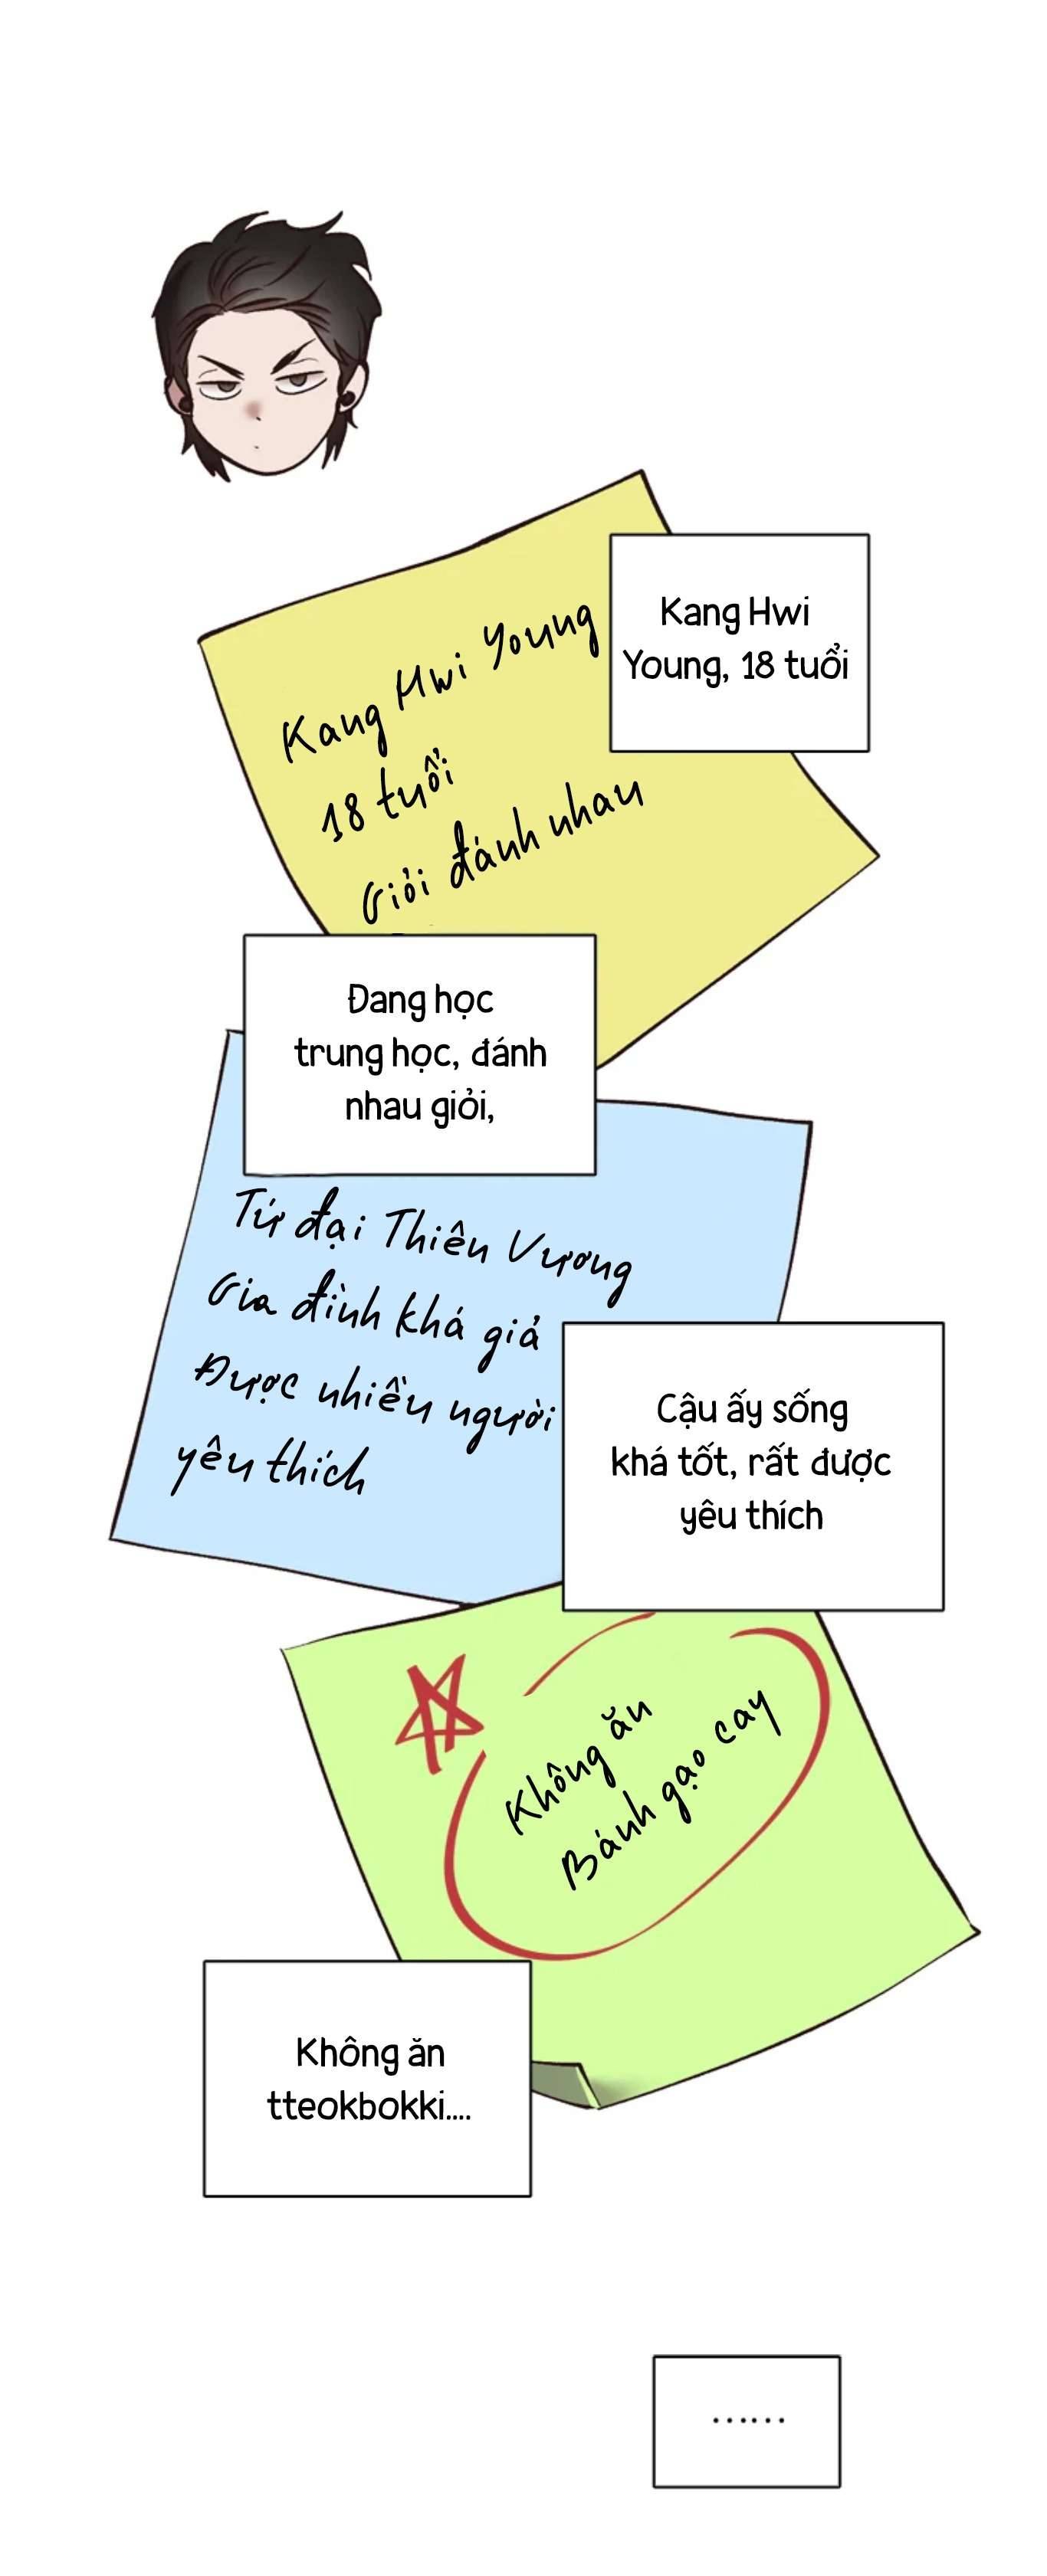 Kang Hwi Young
18 tuổi
Giỏi đánh nhau
Kang Hwi
Young, 18 tuổi
Đang học
trung học, đánh
nhau giỏi,
Tứ đại Thiên Vương
Gia đình khá giả
Được nhiều người
yêu thích
Cậu ấy sống
khá tốt, rất được
yêu thích
Không ăn
Bánh gạo cay
Không ăn
tteokbokki....
......